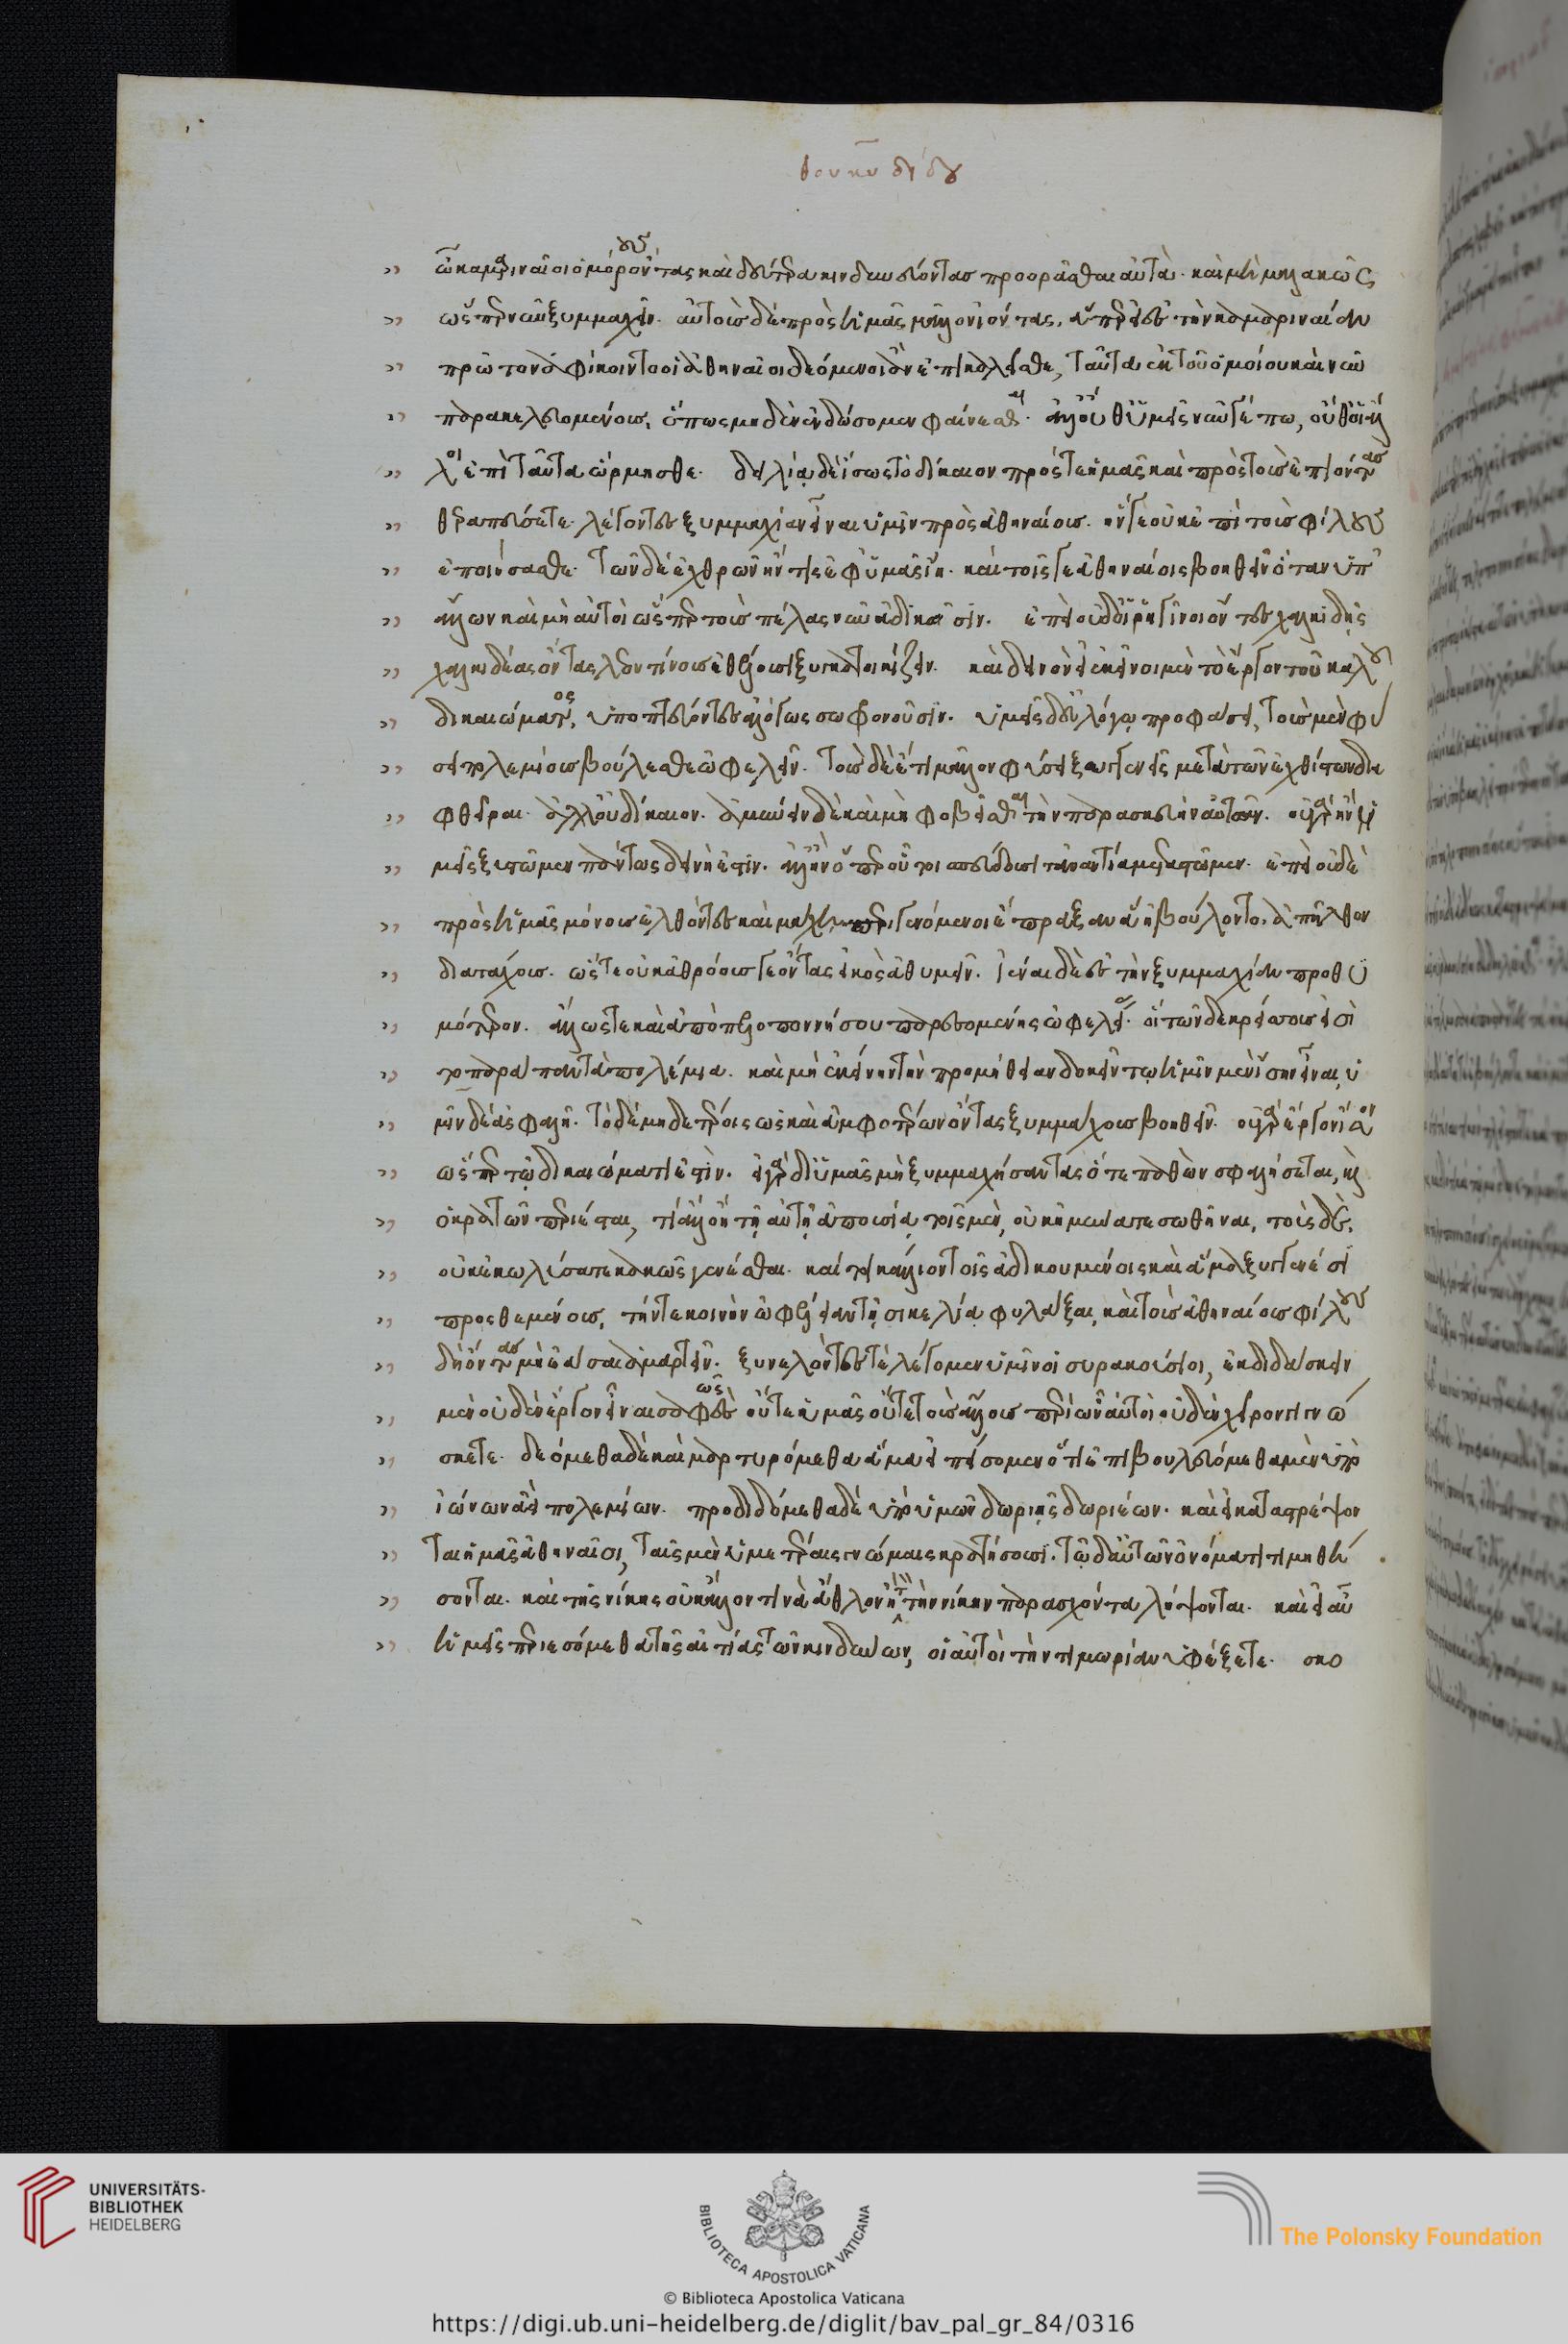 θουκυδίδου
ὦ καμαριναῖοι ὁμόρους ὄντας καὶ δεύτερα κινδυνεύοντας προορᾶσθαι αὐτά· καὶ μὴ μαλακῶς
ὥσπερ νῦν ξυμμαχεῖν. αὐτοὺς δὲ πρὸς ἡμᾶς μᾶλλον ἰόντας, ἅπερ εἰ ἐς τὴν καμαριναίαν
πρῶτον ἀφίκοιντο οἱ ἀθηναῖοι δεόμενοι ἂν ἐπεκαλεῖσθε, ταῦτα ἐκ τοῦ ὁμοίου καὶ νῦν
παρακελευομένους, ὅπως μηδὲν ἐνδώσομεν φαίνεσθαι· ἀλλ' οὔθ' ὑμεῖς νῦν γέ πω, οὔθ' οἱ ἄλ
λοι ἐπὶ ταῦτα ὥρμησθε. δειλίᾳ δὲ ἴσως τὸ δίκαιον πρός τε ἡμᾶς καὶ πρὸς τοὺς ἐπιόντας
θεραπεύσετε· λέγοντες ξυμμαχίαν εἶναι ὑμῖν πρὸς ἀθηναίους. ἥν γε οὐκ ἐπὶ τοῖς φίλους
ἐποιήσασθε. τῶν δὲ ἐχθρῶν ἤν τις ἐφ' ὑμᾶς ἴῃ. καὶ τοῖς γε ἀθηναίοις βοηθεῖν ὅταν ὑπ'
ἄλλων καὶ μὴ αὐτοὶ ὥσπερ τοὺς πέλας νῦν ἀδικῶσιν. ἐπεὶ οὐδ' οἱ ῥηγῖνοι ὄντες χαλκιδῆς
χαλκιδέας ὄντας λεοντίνους ἐθέλουσι ξυγκατοικίζειν. καὶ δεινὸν εἰ ἐκεῖνοι μὲν τὸ ἔργον τοῦ καλοῦ
δικαιώματος, ὑποπτεύοντες ἀλόγως σωφρονοῦσιν. ὑμεῖς δ' εὐλόγῳ προφάσει, τοὺς μὲν φύ
σει πολεμίους βούλεσθε ὠφελεῖν. τοὺς δὲ ἔτι μᾶλλον φύσει ξυγγενεῖς μετὰ τῶν ἐχθίστων δια
φθεῖραι. ἀλλ' οὐ δίκαιον. ἀμύνειν δὲ καὶ μὴ φοβεῖσθαι τὴν παρασκευὴν αὐτῶν. οὐ γὰρ ἢν ἡ
μεῖς ξυστῶμεν πάντες δεινή ἐστιν. ἀλλ' ἢν ὅπερ οὗτοι σπεύδουσι τἀναντία διαστῶμεν. ἐπεὶ οὐδὲ
πρὸς ἡμᾶς μόνους ἐλθόντες καὶ μάχῃ περιγενόμενοι ἔπραξαν ἃ ἠβούλοντο. ἀπῆλθον
διαταχους. ὥστε οὐκ ἀθρόους γε ὄντας εἰκὸς ἀθυμεῖν. ἰέναι δὲ ἐς τὴν ξυμμαχίαν προθυ
μότερον. ἄλλως τε καὶ ἀπὸ πελοποννήσου παρεσομένης ὠφελείας. οἳ τῶνδε κρείσσους εἰσὶ
τὸ παράπαν τὰ πολέμια. καὶ μὴ ἐκείνην τὴν προμήθειαν δοκεῖν τῳ ἡμῖν μὲν ἴσην εἶναι, ὑ
μῖν δὲ ἀσφαλῆ. τὸ δὲ μηδετέροις ὡς καὶ ἀμφοτέρων ὄντας ξυμμάχους βοηθεῖν. οὐ γὰρ ἔργον ἴσον
ὥσπερ τῷ δικαιώματι ἐστίν. εἰ γὰρ δι' ὑμᾶς μὴ ξυμμαχήσαντας ὅ τε παθὼν σφαλήσεται, καὶ
ὁ κρατῶν περιέσται, τί ἄλλο ἢ τῇ αὐτῇ ἀπουσίᾳ τοῖς μὲν, οὐκ ἠμύνατε σωθῆναι, τοὺς δὲ,
οὐκ ἐκωλύσατε κακῶς γενέσθαι. καί τοι κάλλιον τοῖς ἀδικουμένοις καὶ ἅμα ξυγγενέσι
προσθεμένους, τήν τε κοινὴν ὠφέλειαν τῇ σικελίᾳ φυλάξαι, καὶ τοὺς ἀθηναίους φίλους
δὴ ὄντας μὴ ἐᾶσαι ἁμαρτεῖν. ξυνελόντες τε λέγομεν ὑμῖν οἱ συρακούσιοι, ἐκδιδάσκειν
μὲν οὐδὲν ἔργον εἶναι σαφῶς οὔτε ὑμᾶς οὔτε τοὺς ἄλλους περὶ ὧν αὐτοὶ οὐδὲν χεῖρον γιγνώ
σκετε. δεόμεθα δὲ καὶ μαρτυρόμεθα ἅμα εἰ πείσομεν ὅτι ἐπιβουλευόμεθα μὲν ὑπὸ
ἰώνων ἀεὶ πολεμίων. προδιδόμεθα δὲ ὑπὸ ὑμῶν δωριῆς δωριέων. καὶ εἰ καταστρέψον
ται ἡμᾶς ἀθηναῖοι, ταῖς μὲν ὑμετέραις γνώμαις κρατήσουσι. τῷ δ' αὑτῶν ὀνόματι τιμηθή
σονται. καὶ τῆς νίκης οὐκ ἄλλον τινὰ ἆθλον ἢ τὸν τὴν νίκην παρασχόντα λήψονται. καὶ εἰ αὖ
ἡμεῖς περιεσόμεθα τῆς αἰτίας τῶν κινδύνων, οἱ αὐτοὶ τὴν τιμωρίαν ὑφέξετε. σκο
UNIVERSITÄTS-
BIBLIOTHEK
HEIDELBERG
BIBLIOTECA APOSTOLICA VATICANA
The Polonsky Foundation
© Biblioteca Apostolica Vaticana
https://digi.ub.uni-heidelberg.de/diglit/bav_pal_gr_84/0316